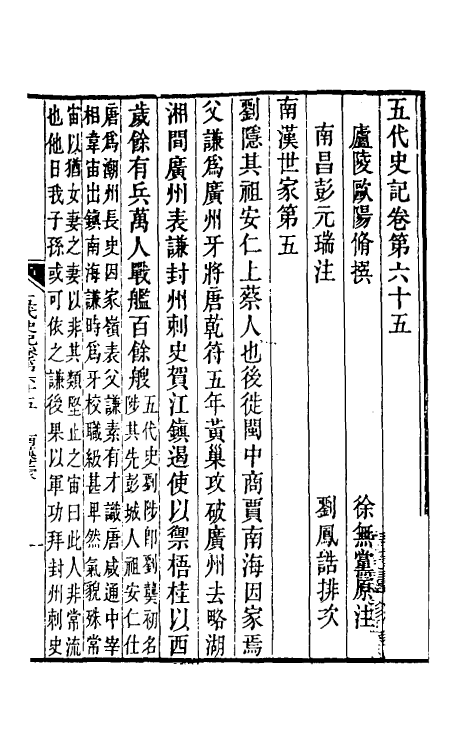 五代史記卷第六十五
廬陵歐陽脩撰 徐無黨原注
南昌彭元瑞注 劉鳳誥排次
南漢世家第五
劉隱其祖安仁上蔡人也後徙閩中商賈南海因家焉
父謙為廣州牙將唐乾符五年黃巢攻破廣州去略湖
湘間廣州表謙封州刺史賀江鎮遏使以禦梧桂以西
歲餘有兵萬人戰艦百餘艘
五代史劉陟即劉龑初名
陟其先彭城人祖安仁仕
唐為潮州長史因家嶺表父謙素有才識唐咸通中宰
相韋宙出鎮南海謙時為牙校職級甚卑然氣貌殊常
宙以猶女妻之妻以非其類堅止之宙曰此人非常流
也他日我子孫或可依之謙後果以軍功拜封州刺史